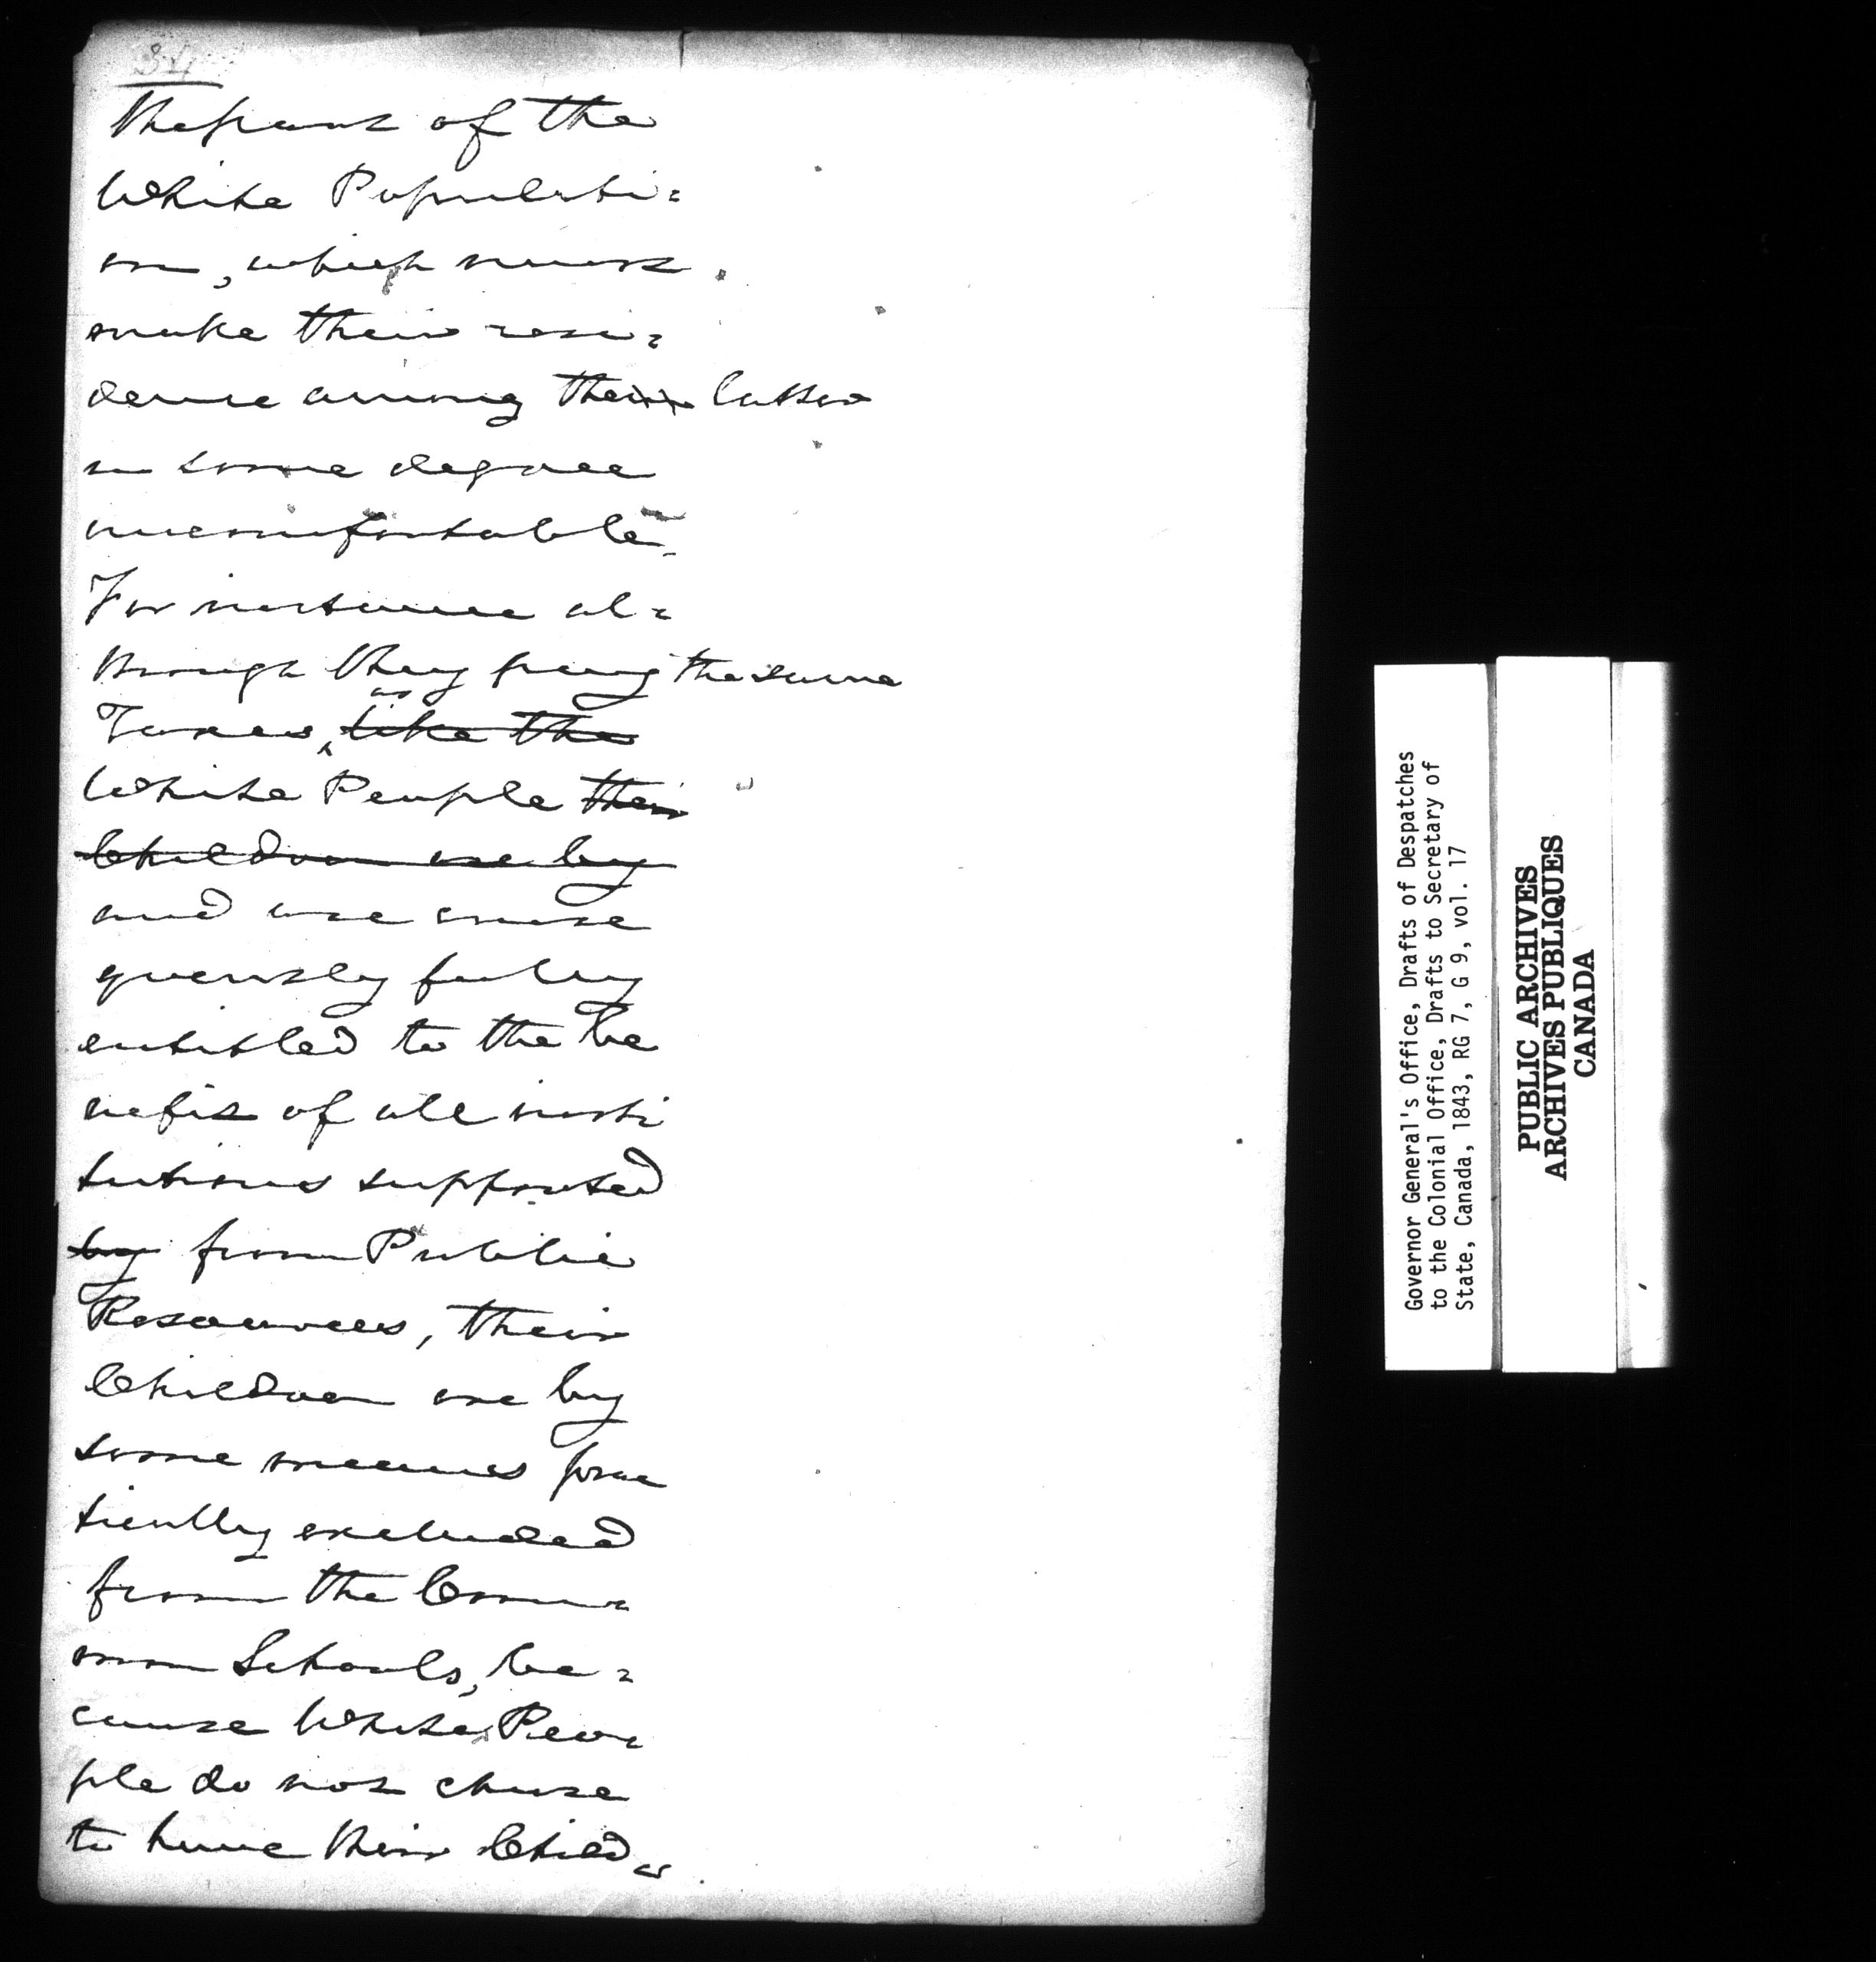 34
the part of the
White Populati=
on, which must
make their resi=
dence among the latter
in some degree
uncomfortable.
For instance al=
though they pay the same
Taxes, as like the
White People their
Children are by
and are conse
quently fully
entitled to the be
nefit of all insti
tutions supported
by from Public
Resources, their
Children are by
some means prac
tically excluded
from the Com=
mon Schools, be=
cause White Peo=
ple do not chuse
to have their Child=
Governor General's Office, Drafts of Despatches
to the Colonial Office, Drafts to Secretary of
State, Canada, 1843, RG 7, G 9, vol. 17
PUBLIC ARCHIVES
ARCHIVES PUBLIQUES
CANADA